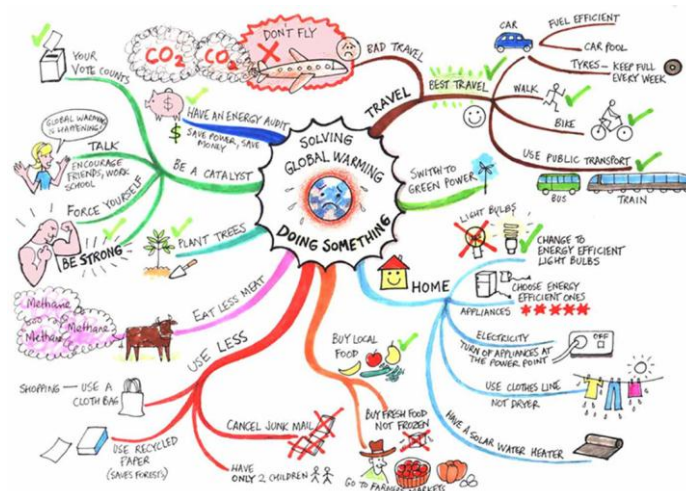 SOLVING
GLOBAL WARMING
DOING SOMETHING
TRAVEL
BAD TRAVEL
DON'T FLY
CO2
CO2
BEST TRAVEL
CAR
FUEL EFFICIENT
CAR POOL
TYRES – KEEP FULL
EVERY WEEK
WALK
BIKE
USE PUBLIC TRANSPORT
BUS
TRAIN
SWITCH TO
GREEN POWER
HOME
LIGHT BULBS
CHANGE TO
ENERGY EFFICIENT
LIGHT BULBS
APPLIANCES
CHOOSE ENERGY
EFFICIENT ONES
ELECTRICITY
TURN OF APPLIANCES AT
THE POWER POINT
USE CLOTHES LINE
NOT DRYER
HAVE A SOLAR WATER HEATER
BUY LOCAL
FOOD
BUY FRESH FOOD
NOT FROZEN
GO TO FARMERS MARKETS
USE LESS
SHOPPING — USE A
CLOTH BAG
USE RECYCLED
PAPER
(SAVES FORESTS)
CANCEL JUNK MAIL
HAVE
ONLY 2 CHILDREN
EAT LESS MEAT
Methane
Methane
Methane
PLANT TREES
BE A CATALYST
YOUR
VOTE COUNTS
TALK
ENCOURAGE
FRIENDS, WORK
SCHOOL
GLOBAL WARMING
IS HAPPENING!
FORCE YOURSELF
BE STRONG
HAVE AN ENERGY AUDIT
SAVE POWER, SAVE
MONEY
$